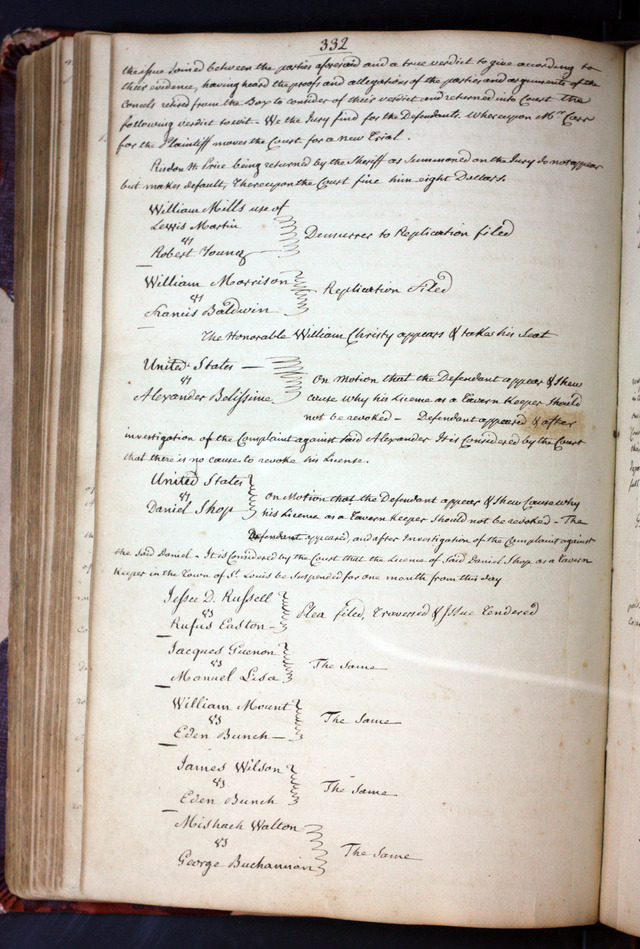 332
the issue Joined between the parties aforesaid and a true verdict to give according to
their evidence, having heard the proofs and allegations of the parties and arguments of the
Concels retired from the Box to consider of their verdict and returned into Court the
following verdict to wit - We the Jury find for the Defendants. Whereupon Mr. Carr
for the Plaintiff moves the Court for a new Trial.
Risdon H. Price being returned by the Sheriff as Summoned on the Jury do not appear
but makes default, Thereupon the Court fine him eight Dollars.
William Mills use of
Lewis Martin
vs
Robert Young
Demurrer to Replication filed
William Morrison
vs
Francis Baldwin
Replication Filed
The Honorable William Christy appears & takes his Seat
United States —
vs
Alexander Belissime
On Motion that the Defendant appear & Shew
cause why his License as a Tavern Keeper Should
not be revoked — Defendant appeared & after
investigation of the Complaint against Said Alexander It is Considered by the Court
that there is no cause to revoke his License.
United States
vs
Daniel Shop
On Motion that the Defendant appear & Shew Cause why
his License as a Tavern Keeper Should not be revoked - The
Defendant appeared, and after Investigation of the Complaint against
the Said Daniel - It is Considered by the Court that the Licence of Said Daniel Shop as a Tavern
Keeper in the Town of St. Louis be Suspended for one month from this day
Jessee D. Russell
vs
Rufus Easton -
Plea filed, Traversed & Issue Tendered
Jacques Guenon
vs
Manuel Lisa
The Same
William Mount
vs
Eden Bunch —
The Same
James Wilson
vs
Eden Bunch
The Same
Mishach Walton
vs
George Buchannan
The Same